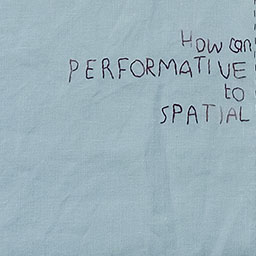 How can
PERFORMATIVE
to
SPATIAL